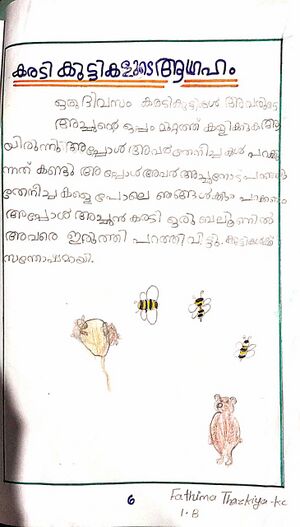 കരടി കുട്ടികളുടെ ആഗ്രഹം
ഒരു ദിവസം കരടികുട്ടികൾ അവരുടെ
അച്ഛന്റെ ഒപ്പം മുറ്റത്ത് കളിക്കുക ആ
യിരുന്നു. അപ്പോൾ അവർ തേനീച്ചകൾ പറക്കു
ന്നത് കണ്ടു. അപ്പോൾ അവർ അച്ഛനോട് പറഞ്ഞു
തേനീച്ചകളെ പോലെ ഞങ്ങൾക്കും പറക്കണം
അപ്പോൾ അച്ഛൻ കരടി ഒരു ബലൂണിൽ
അവരെ ഇരുത്തി പറത്തി വിട്ടു. കുട്ടികൾക്ക്
സന്തോഷമായി.
6
Fathima Thazkiya.kc
1.B